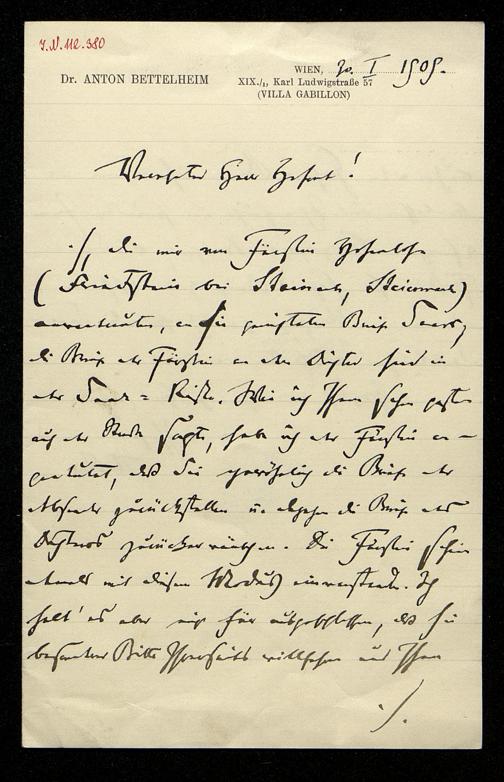 J.N. 112.380
Dr. ANTON BETTELHEIM
WIEN, 20. I 1909.
XIX./1, Karl Ludwigstraße 57
(VILLA GABILLON)
Verehrter Herr !
·/. die mir von Fürstin Hohenlohe
(Friedstein bei Stainach, Steiermark)
anvertrauten, an Sie gerichteten Briefe Saars,
die Briefe der Fürstin an den Dichter sind in
der Saar = Kiste. Wie ich Ihnen schon gestern
auf der Straße sagte, habe ich der Fürstin an-
gedeutet, daß Sie gewöhnlich die Briefe der
Absender zurückstellen u. dagegen die Briefe des
Dichters zurückerwünschen. Die Fürstin schien
damals mit diesem Modus einverstanden. Ich
halt' es aber nicht für ausgeschlossen, daß sie
besonderer Bitte Ihrerseits willfahren und Ihnen
·/.